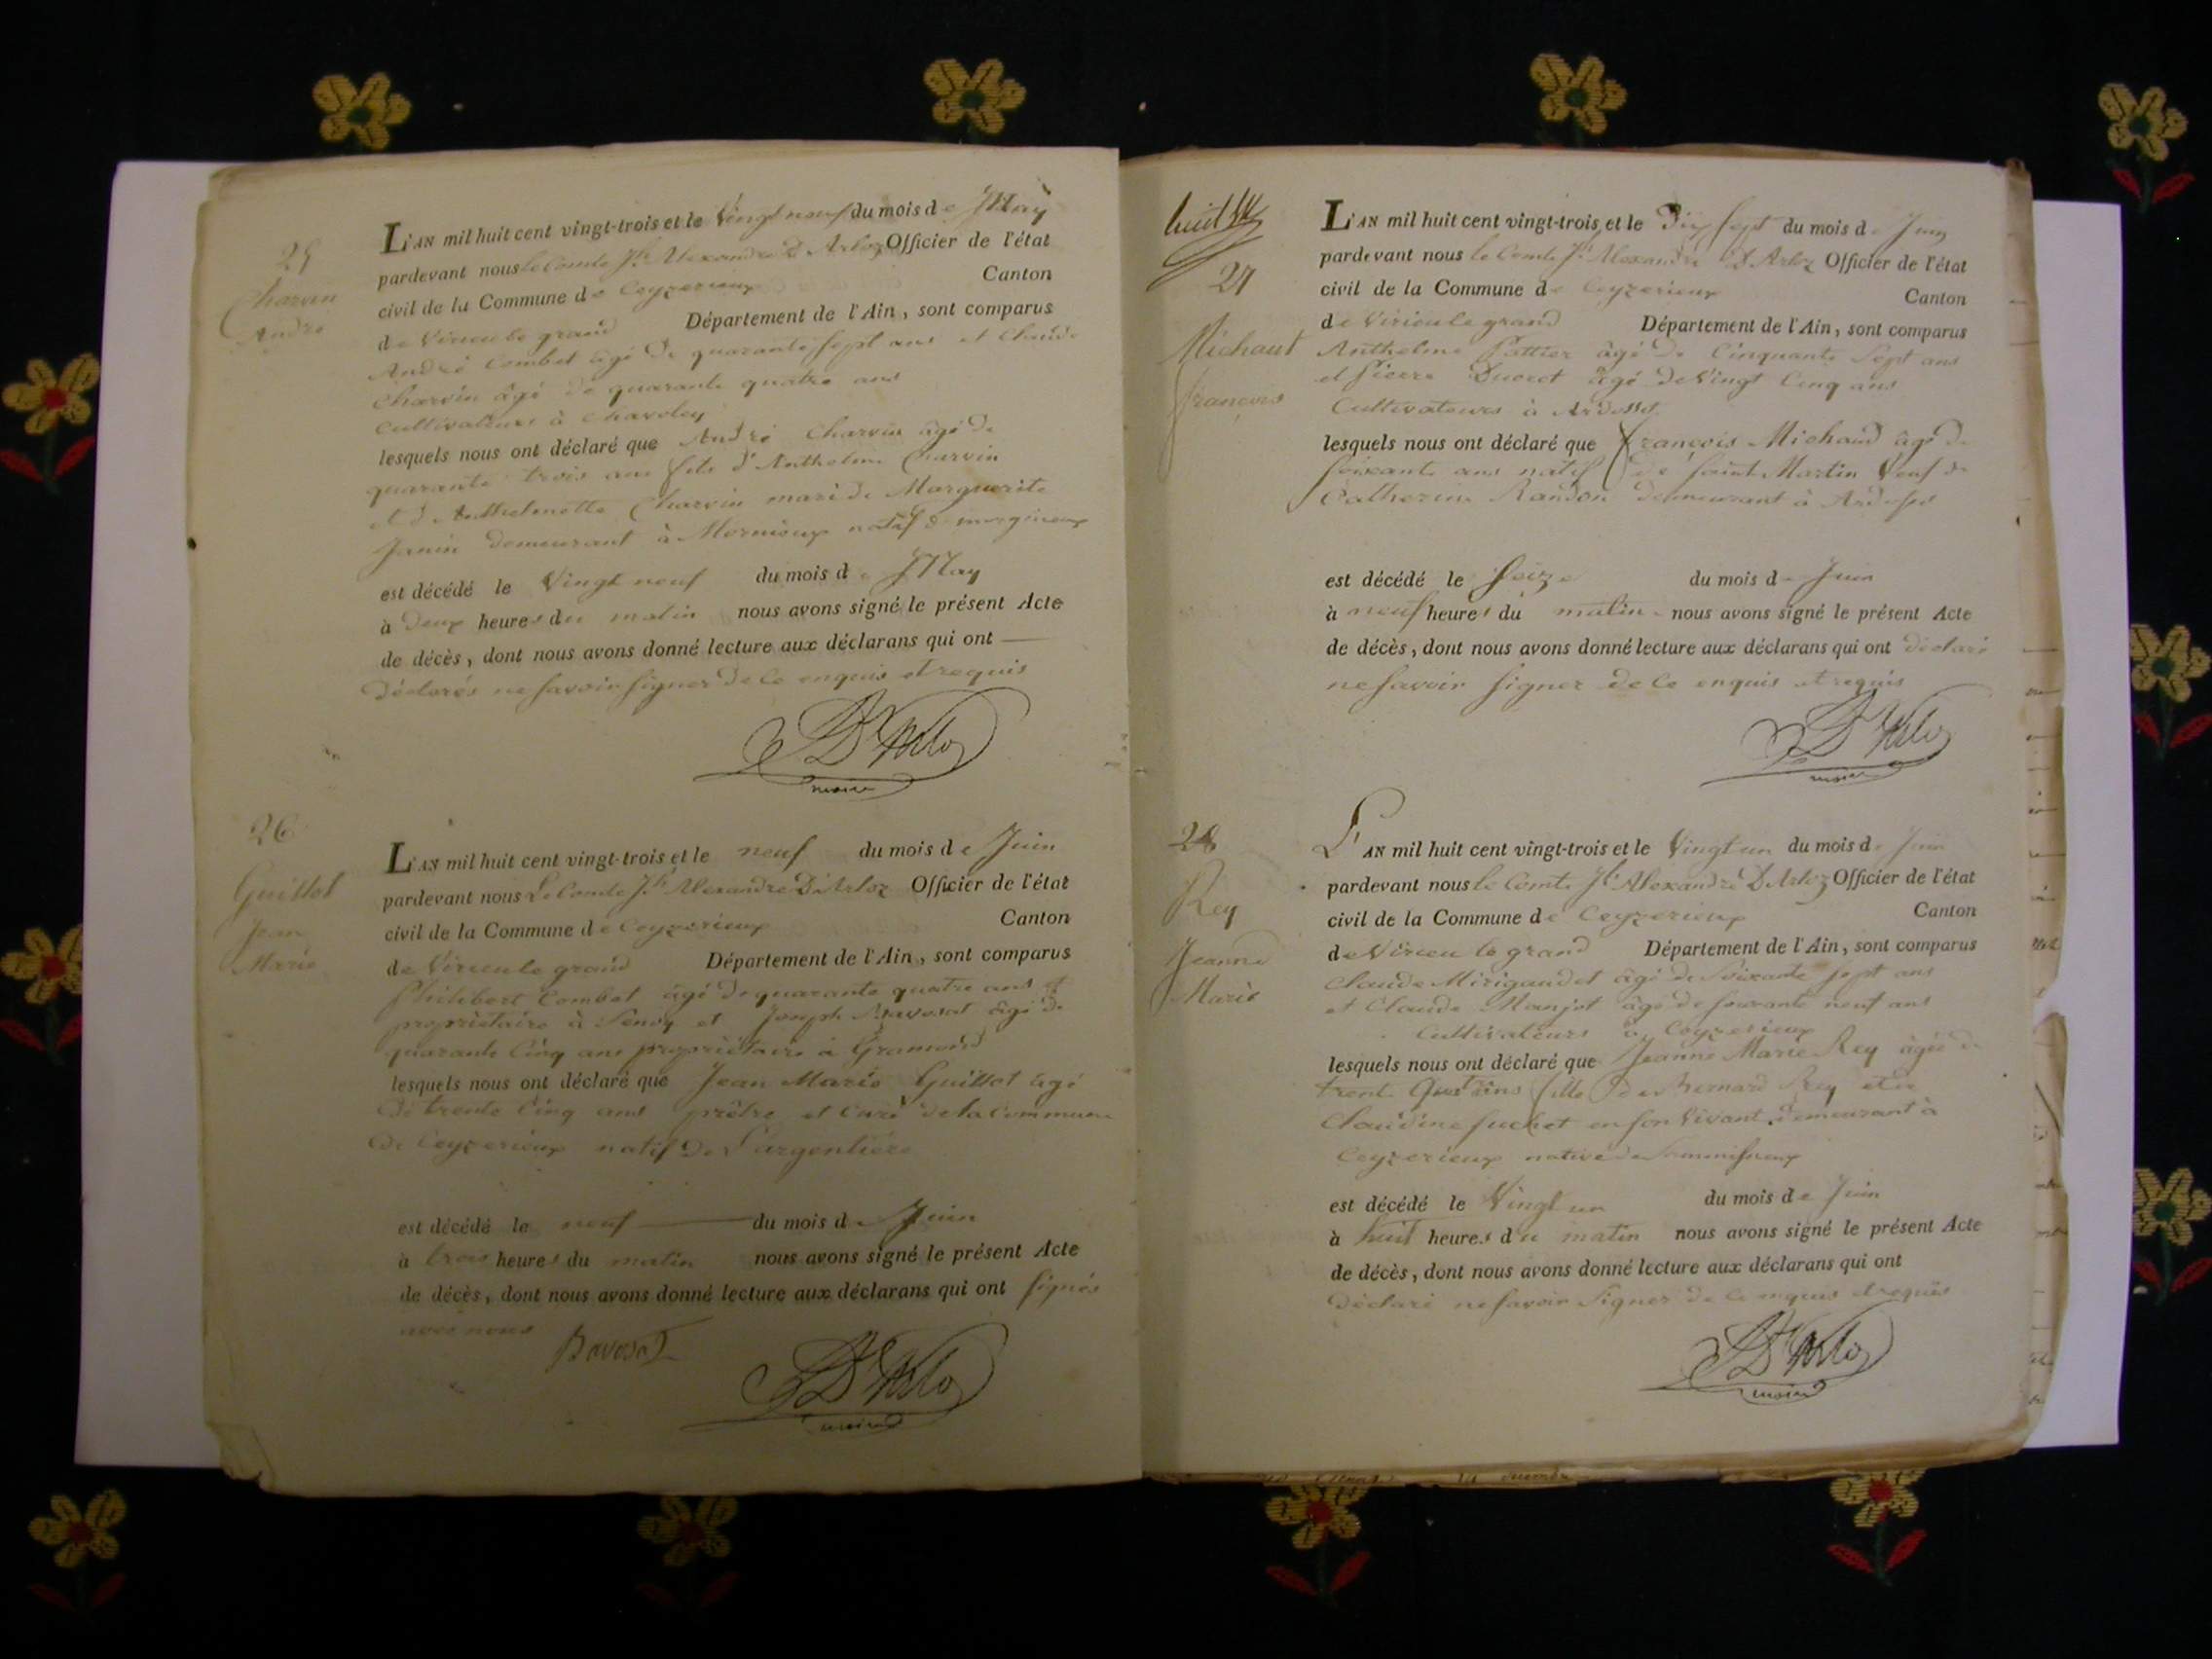 25
Charvin
André
L'AN mil huit cent vingt-trois et le Vingt neuf du mois de May
pardevant nous le Comte Jh Alexandre D'Arloz Officier de l'état
civil de la Commune de Ceyzerieux Canton
de Virieu le grand Département de l'Ain, sont comparus
André Combet âgé de quarante sept ans et Claude
Charvin âgé de quarante quatre ans
Cultivateurs à Chavoley
lesquels nous ont déclaré que André Charvin âgé de
quarante trois ans fils d'Anthelme Charvin
et d'Anthelmette Charvin mari de Marguerite
Janin demeurant à Mornieux natif de
est décédé le Vingt neuf du mois de May
à Deux heures du matin nous avons signé le présent Acte
de décès, dont nous avons donné lecture aux déclarans qui ont
Déclarés ne savoir signer de ce enquis et requis
D'Arloz
maire
26
Guillot
Jean
Marie
L'AN mil huit cent vingt-trois et le neuf du mois de Juin
pardevant nous Le Comte Jh Alexandre D'Arloz Officier de l'état
civil de la Commune de Ceyzerieux Canton
de Virieu le grand Département de l'Ain, sont comparus
Philibert Combet âgé de quarante quatre ans et
propriétaire à et Joseph Bavosat âgé de
quarante Cinq ans propriétaire à Gramond
lesquels nous ont déclaré que Jean Marie Guillot âgé
de trente Cinq ans prêtre et Curé de la Commune
de Ceyzerieux natif de Largentière
est décédé le neuf du mois de Juin
à trois heures du matin nous avons signé le présent Acte
de décès, dont nous avons donné lecture aux déclarans qui ont signés
avec nous
Bavosat
D'Arloz
maire
27
Michaut
françois
L'AN mil huit cent vingt-trois et le Dix sept du mois de Juin
pardevant nous le Comte Jh Alexandre D'Arloz Officier de l'état
civil de la Commune de Ceyzerieux Canton
de Virieu le grand Département de l'Ain, sont comparus
Anthelme Pottier âgé de Cinquante Sept ans
et Pierre Ducret âgé de Vingt Cinq ans
Cultivateurs à Ardosset
lesquels nous ont déclaré que françois Michaud âgé de
soixante ans natif de Saint Martin Veuf de
Catherine Randon demeurant à Ardosset
est décédé le seize du mois de Juin
à neuf heures du matin nous avons signé le présent Acte
de décès, dont nous avons donné lecture aux déclarans qui ont déclaré
ne savoir signer de ce enquis et requis
D'Arloz
maire
28
Rey
Jeanne
Marie
L'AN mil huit cent vingt-trois et le Vingt un du mois de Juin
pardevant nous le Comte Jh Alexandre D'Arloz Officier de l'état
civil de la Commune de Ceyzerieux Canton
de Virieu le grand Département de l'Ain, sont comparus
Claude Mirigaudet âgé de Soixante sept ans
et Claude Manjot âgé de soixante neuf ans
Cultivateurs à Ceyzerieux
lesquels nous ont déclaré que Jeanne Marie Rey âgée de
trente ans fille de Bernard Rey et de
Claudine fuchet en son Vivant demeurant à
Ceyzerieux native de
est décédé le Vingt un du mois de Juin
à huit heures du matin nous avons signé le présent Acte
de décès, dont nous avons donné lecture aux déclarans qui ont
Déclaré ne savoir Signer de ce enquis et requis
D'Arloz
maire